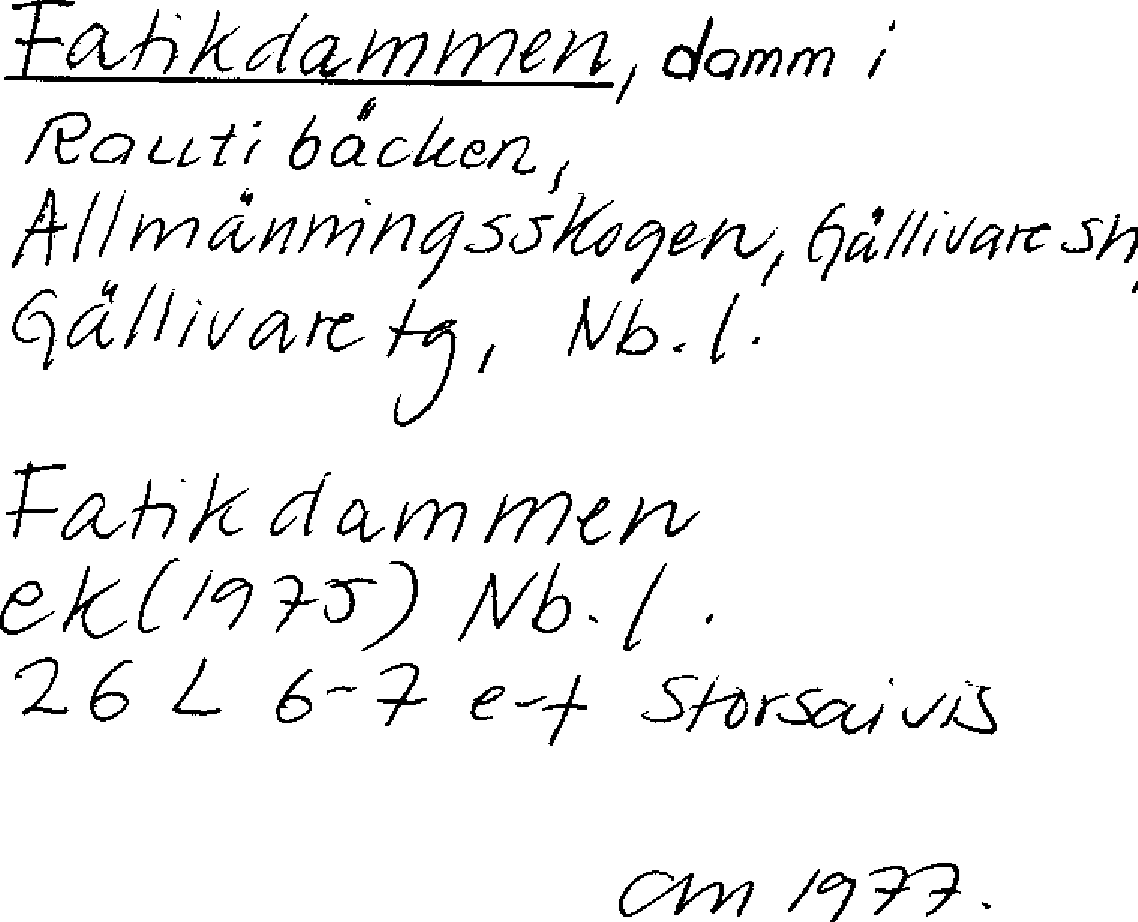 Fatikdammen, damm i
Rautibäcken,
Allmänningsskogen, Gällivare sn,
Gällivare tg, Nb. l.
Fatikdammen
ek (1975) Nb. l.
26 L 6-7 e-f Storsaivis
CM 1977.